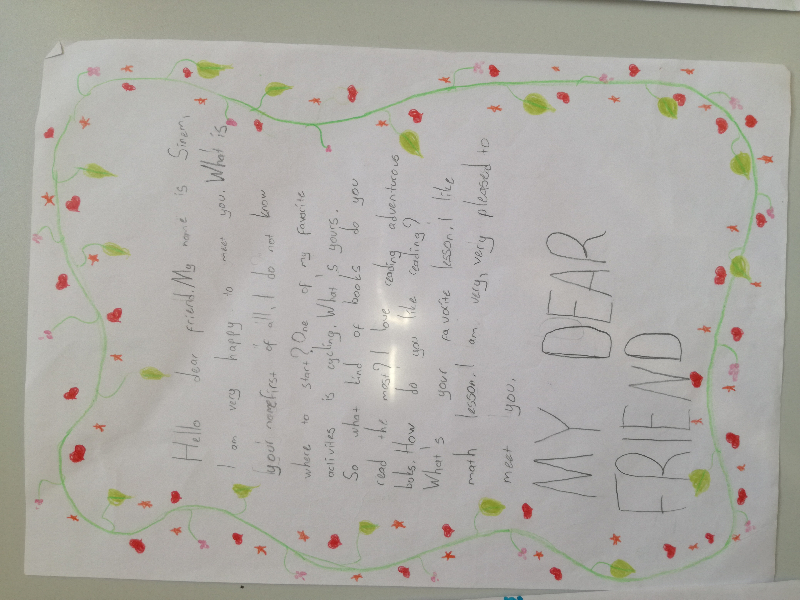 Hello dear friend. My name is Sinem,
I am very happy to meet you. What is
your name? First of all, I do not know
where to start? One of my favorite
activites is cycling. What is yours.
So what kind of books do you
read the most? I love reading adventurous
boks. How do you like reading?
What's your favorite lesson. I like
math lesson. I am very, very pleased to
meet you.
MY DEAR
FRIEND